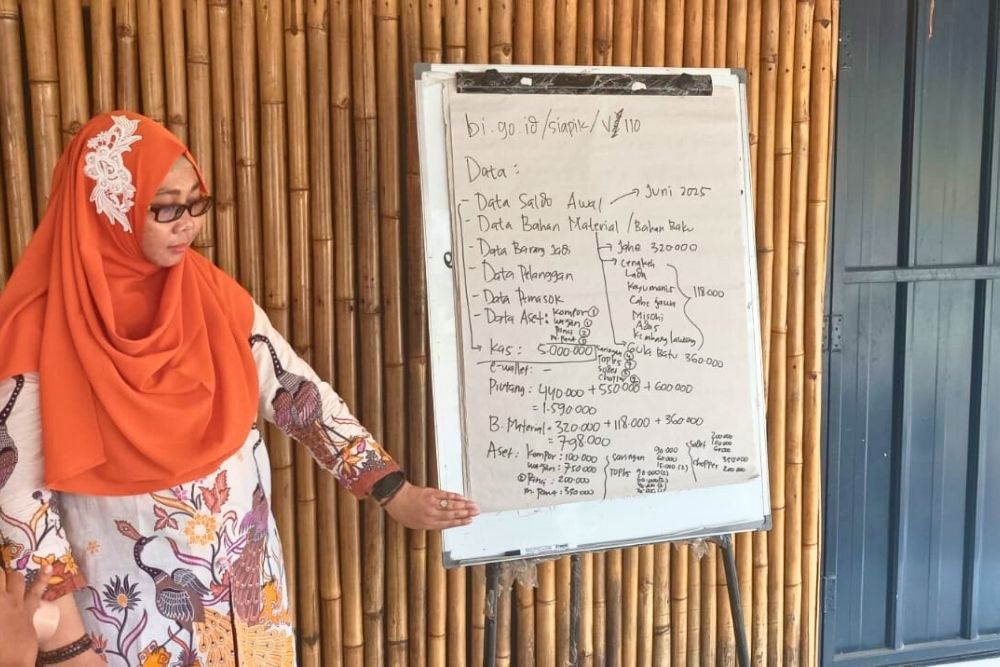 bi.go.id/siapik/V 110
Data :
- Data Saldo Awal → Juni 2025
- Data Bahan Material / Bahan Baku
- Data Barang Jadi
→ Jahe 320.000
→ Cengkeh
Lada
Kayumanis
Cabe Jawa
Adas
118.000
- Data Pelanggan
- Data Pemasok
- Data Aset : Kompor ①
Wajan ①
Panci ②
→ Gula Batu 360.000
→ Kas : 5.000.000
Saringan
Toples
Chopper
e-wallet : -
Piutang : 440.000 + 550.000 + 600.000
= 1.590.000
B. Material = 320.000 + 118.000 + 360.000
= 798.000
Aset : Kompor : 100.000
Wajan : 750.000
② Panci : 200.000
350.000
Saringan 90.000
60.000
Toples
Chopper 350.000
200.000